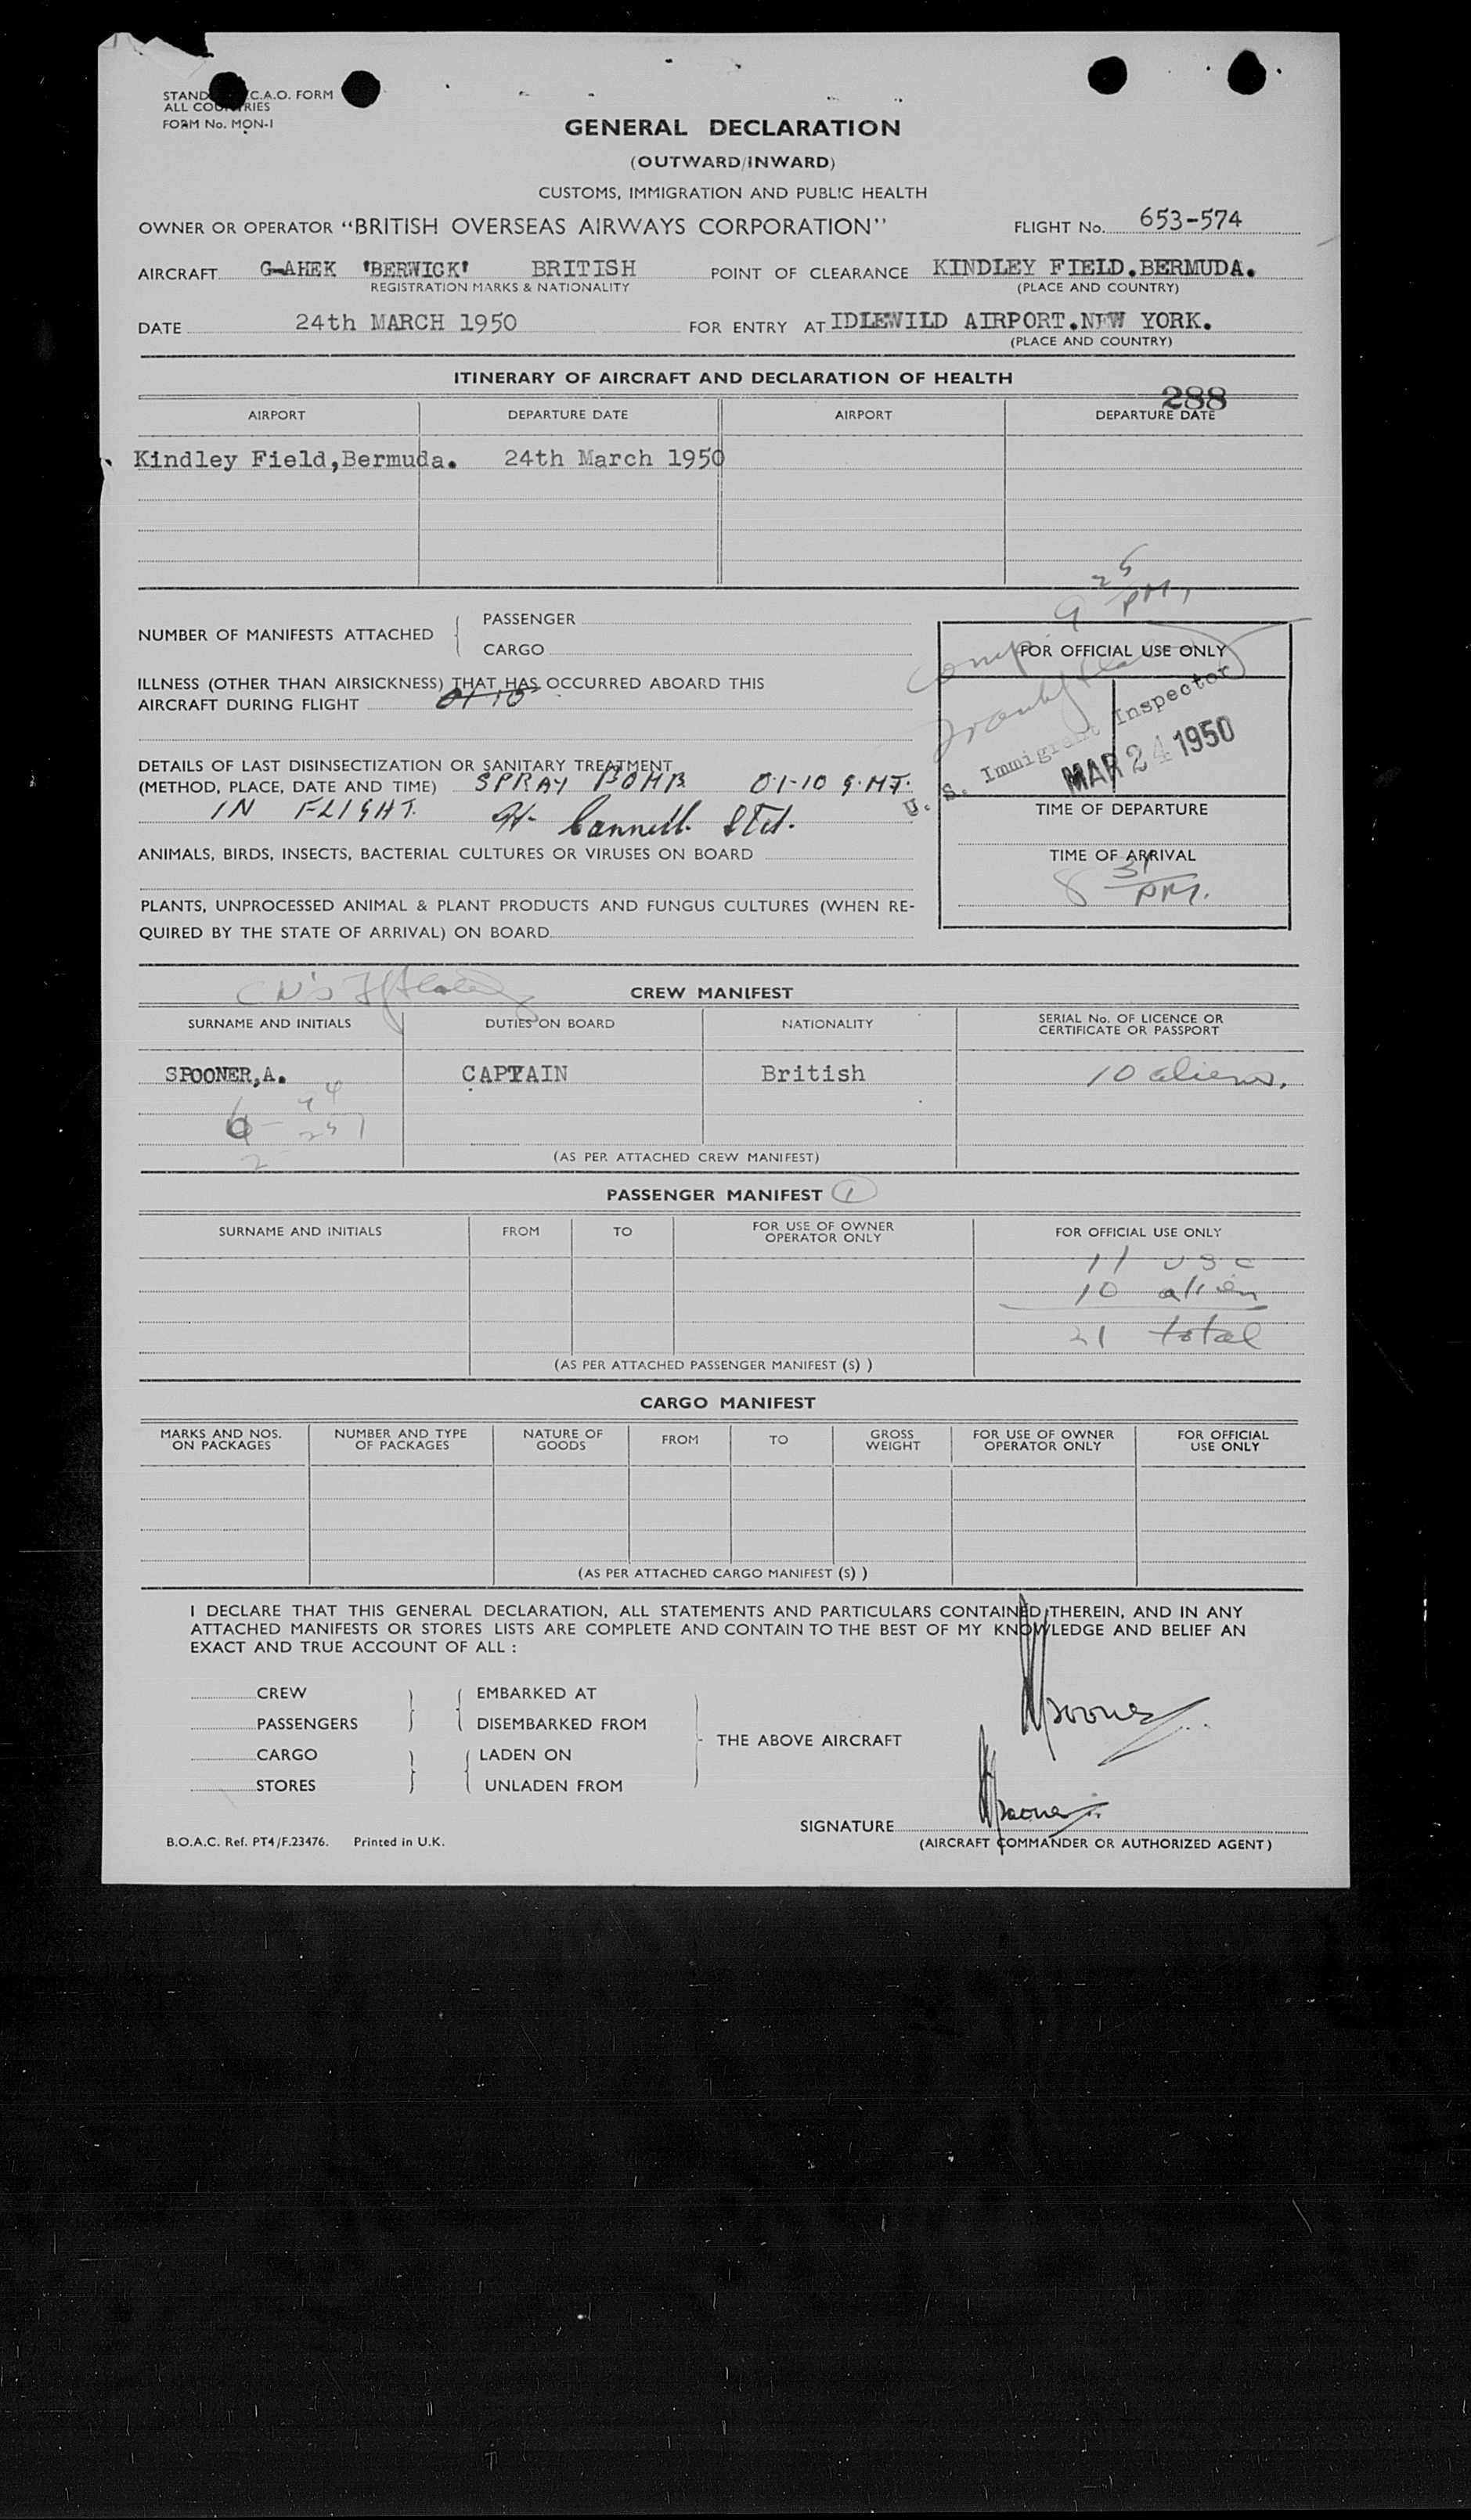 STAND C.A.O. FORM
ALL COUNTRIES
FORM No. MON-1
GENERAL DECLARATION
(OUTWARD/INWARD)
CUSTOMS, IMMIGRATION AND PUBLIC HEALTH
OWNER OR OPERATOR "BRITISH OVERSEAS AIRWAYS CORPORATION" FLIGHT No. 653-574
AIRCRAFT G-AHEK 'BERWICK' BRITISH POINT OF CLEARANCE KINDLEY FIELD.BERMUDA.
REGISTRATION MARKS & NATIONALITY (PLACE AND COUNTRY)
DATE 24th MARCH 1950 FOR ENTRY AT IDLEWILD AIRPORT.NEW YORK.
(PLACE AND COUNTRY)
ITINERARY OF AIRCRAFT AND DECLARATION OF HEALTH
288
AIRPORT DEPARTURE DATE AIRPORT DEPARTURE DATE
Kindley Field,Bermuda. 24th March 1950
9 25 PM,
NUMBER OF MANIFESTS ATTACHED { PASSENGER
CARGO
Comp.
FOR OFFICIAL USE ONLY
ILLNESS (OTHER THAN AIRSICKNESS) THAT HAS OCCURRED ABOARD THIS
AIRCRAFT DURING FLIGHT 01 10
U. S. Immigrant Inspector
MAR 24 1950
DETAILS OF LAST DISINSECTIZATION OR SANITARY TREATMENT
(METHOD, PLACE, DATE AND TIME) SPRAY BOMB 01-10 G.M.T.
IN FLIGHT. Cannell. Std.
TIME OF DEPARTURE
ANIMALS, BIRDS, INSECTS, BACTERIAL CULTURES OR VIRUSES ON BOARD
TIME OF ARRIVAL
8 31 PM.
PLANTS, UNPROCESSED ANIMAL & PLANT PRODUCTS AND FUNGUS CULTURES (WHEN RE-
QUIRED BY THE STATE OF ARRIVAL) ON BOARD
CREW MANIFEST
SURNAME AND INITIALS DUTIES ON BOARD NATIONALITY SERIAL No. OF LICENCE OR
CERTIFICATE OR PASSPORT
SPOONER,A. CAPTAIN British 10 aliens,
(AS PER ATTACHED CREW MANIFEST)
PASSENGER MANIFEST 1
SURNAME AND INITIALS FROM TO FOR USE OF OWNER
OPERATOR ONLY FOR OFFICIAL USE ONLY
11 USC
10 alien
21 total
(AS PER ATTACHED PASSENGER MANIFEST (S) )
CARGO MANIFEST
MARKS AND NOS.
ON PACKAGES NUMBER AND TYPE
OF PACKAGES NATURE OF
GOODS FROM TO GROSS
WEIGHT FOR USE OF OWNER
OPERATOR ONLY FOR OFFICIAL
USE ONLY
(AS PER ATTACHED CARGO MANIFEST (S) )
I DECLARE THAT THIS GENERAL DECLARATION, ALL STATEMENTS AND PARTICULARS CONTAINED THEREIN, AND IN ANY
ATTACHED MANIFESTS OR STORES LISTS ARE COMPLETE AND CONTAIN TO THE BEST OF MY KNOWLEDGE AND BELIEF AN
EXACT AND TRUE ACCOUNT OF ALL :
CREW EMBARKED AT
PASSENGERS DISEMBARKED FROM
THE ABOVE AIRCRAFT
ASpooner
CARGO LADEN ON
STORES UNLADEN FROM
SIGNATURE ASpooner
(AIRCRAFT COMMANDER OR AUTHORIZED AGENT)
B.O.A.C. Ref. PT4/F.23476. Printed in U.K.